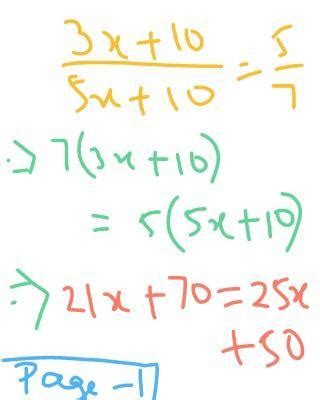 3x+10 / 5x+10 = 5/7
∴> 7(3x+10)
= 5(5x+10)
∴> 21x+70=25x
+50
Page-1